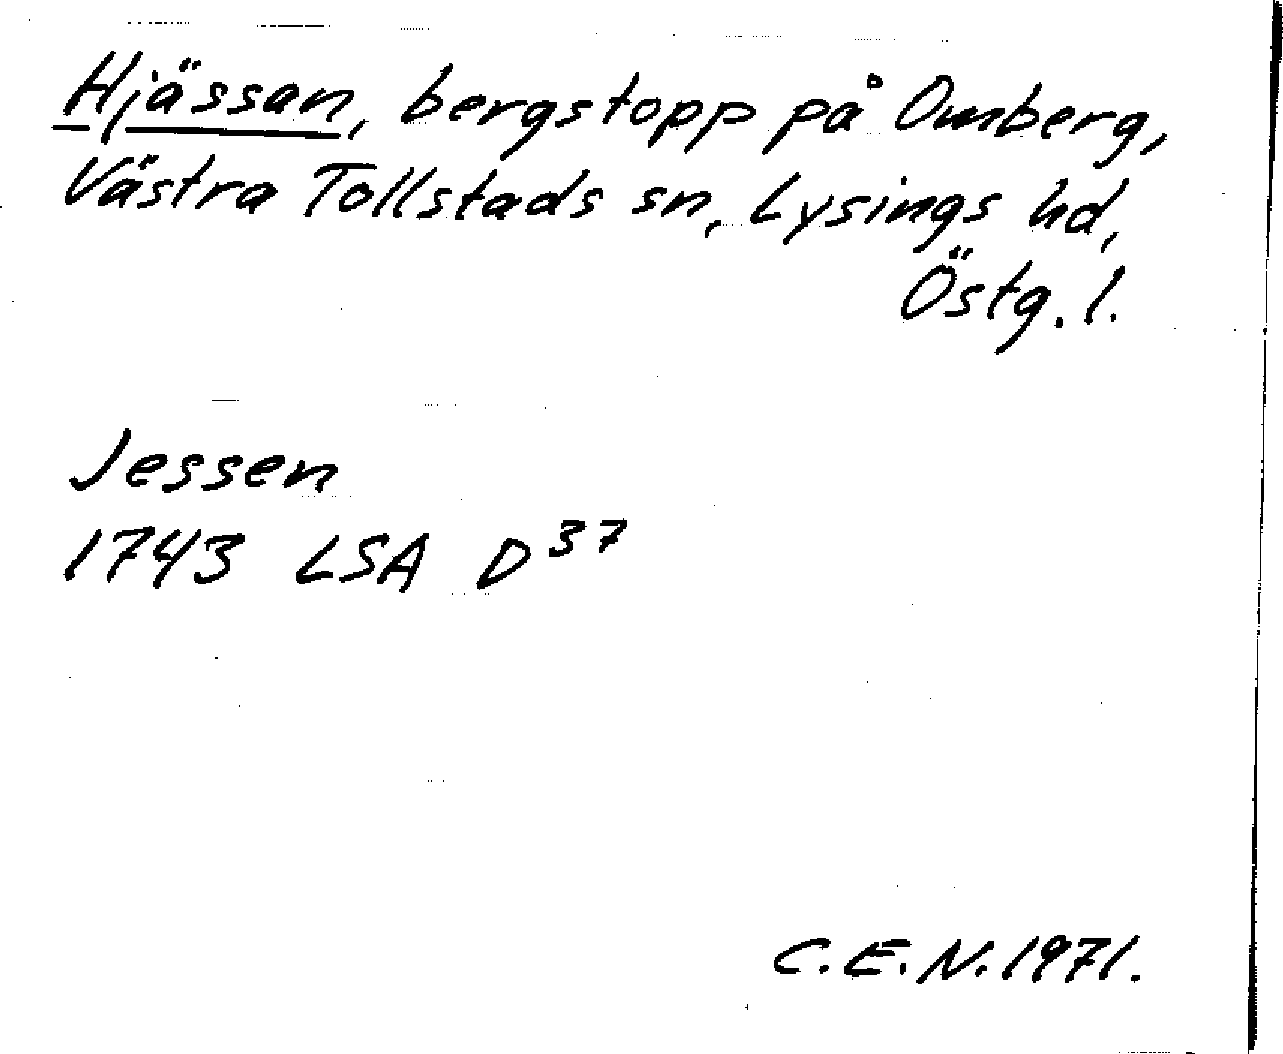 Hjässan, bergstopp på Omberg,
Västra Tollstads sn, Lysings hd,
Östg. l.
Jessen
1743 LSA D³⁷
C.E.N. 1971.